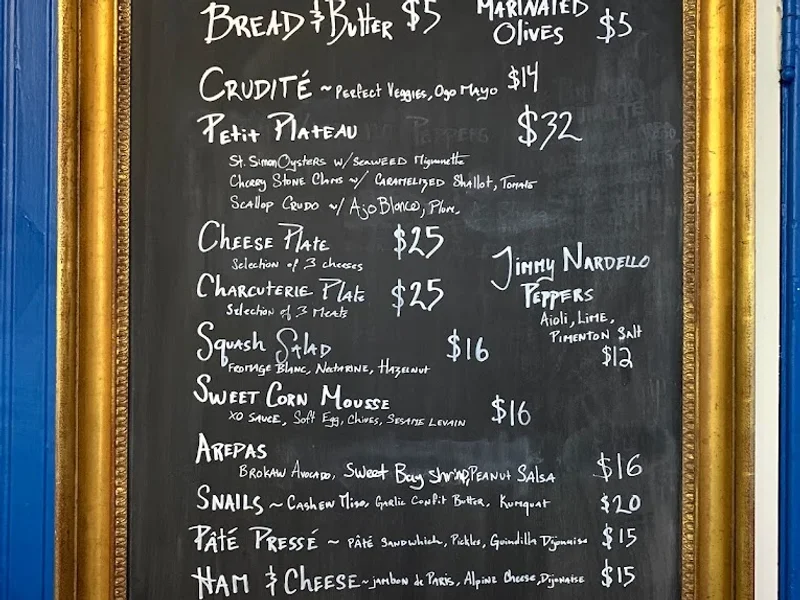 BREAD & Butter $5
MARINATED
OLIVES $5
CRUDITÉ ~ Perfect Veggies, Ogo Mayo $14
Petit Plateau $32
St. Simon Oysters w/ Seaweed Mignonette
Cherry Stone Clams w/ Caramelized Shallot, Tomato
Scallop Crudo w/ Ajo Blanco, Plum.
Cheese Plate $25
Selection of 3 cheeses
Charcuterie Plate $25
Selection of 3 Meats
Jimmy Nardello
Peppers
Aioli, Lime,
Pimenton Salt
$12
Squash Salad $16
Fromage Blanc, Nectarine, Hazelnut
Sweet Corn Mousse $16
XO Sauce, Soft Egg, Chives, Sesame Levain
Arepas
Brokaw Avocado, Sweet Bay Shrimp, Peanut Salsa $16
Snails ~ Cashew Miso, Garlic Confit Butter, Kumquat $20
Pâté Pressé ~ Pâté Sandwhich, Pickles, Guindilla Dijonaise $15
Ham & Cheese ~ jambon de Paris, Alpine Cheese, Dijonaise $15